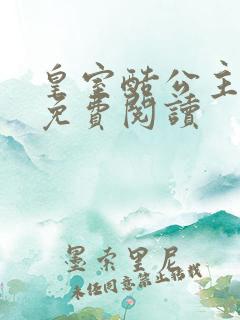 皇室酷公主
免費閱讀
墨索里尼
未经同意禁止转载